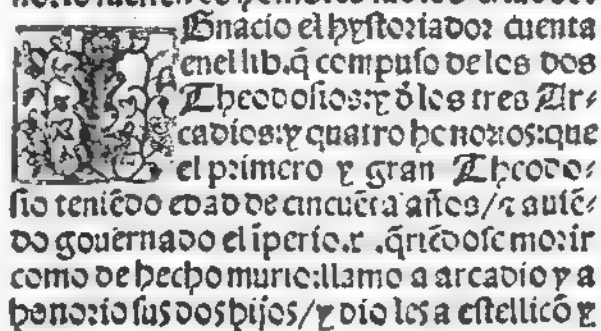 Ignacio el hystoriador cuenta
enel lib. q̃ compuso de los dos
Theodosios: y d̃ los tres Ar⸗
cadios: y quatro honorios: que
el primero y gran Theodo⸗
sio teniẽdo edad de cincuẽta años / ⁊ auiẽ⸗
do gouernado el ĩperio .x. q̃riẽdose morir
como de hecho murio: llamo a arcadio y a
honorio sus dos hijos / y dio les a estellicõ y